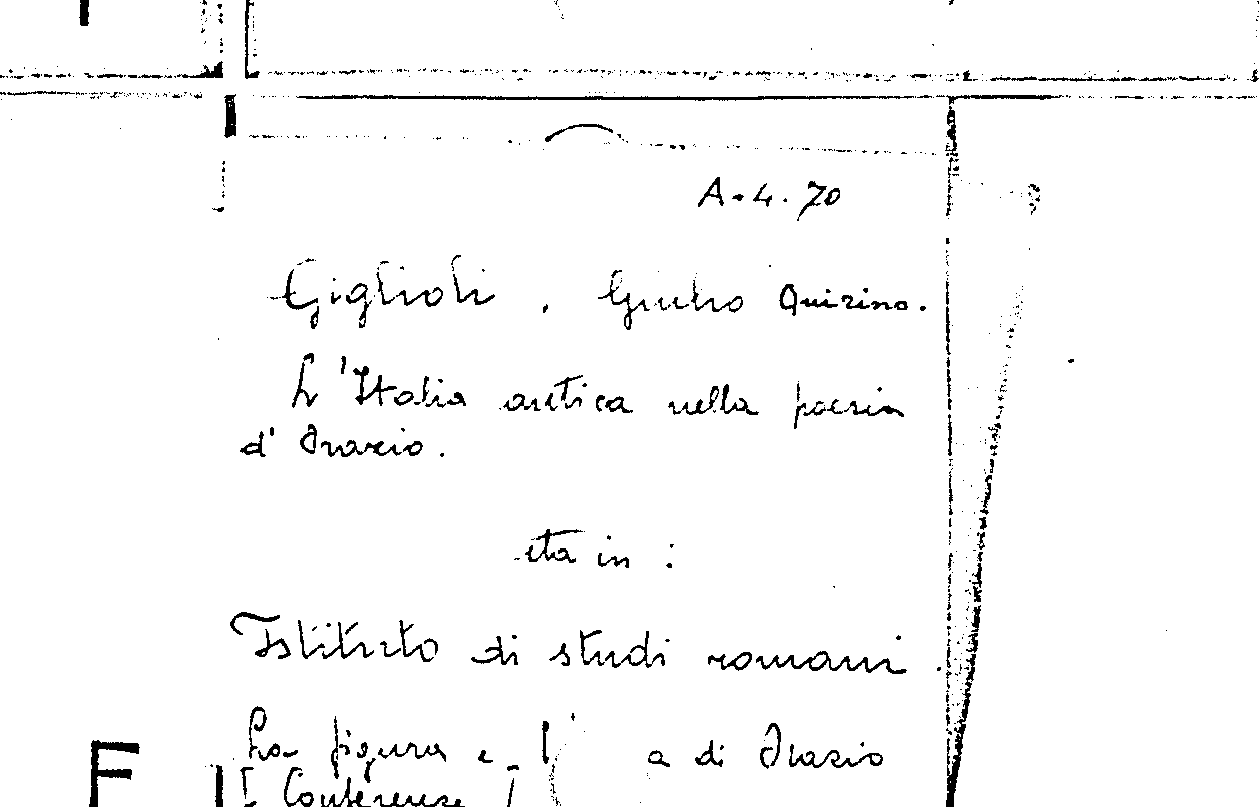 A.4.70
Giglioli, Giulio Quirino.
L'Italia antica nella poesia
d'Orazio.
sta in:
Istituto di studi romani.
La figura e l' a di Orazio
[ Conferenze ]
F